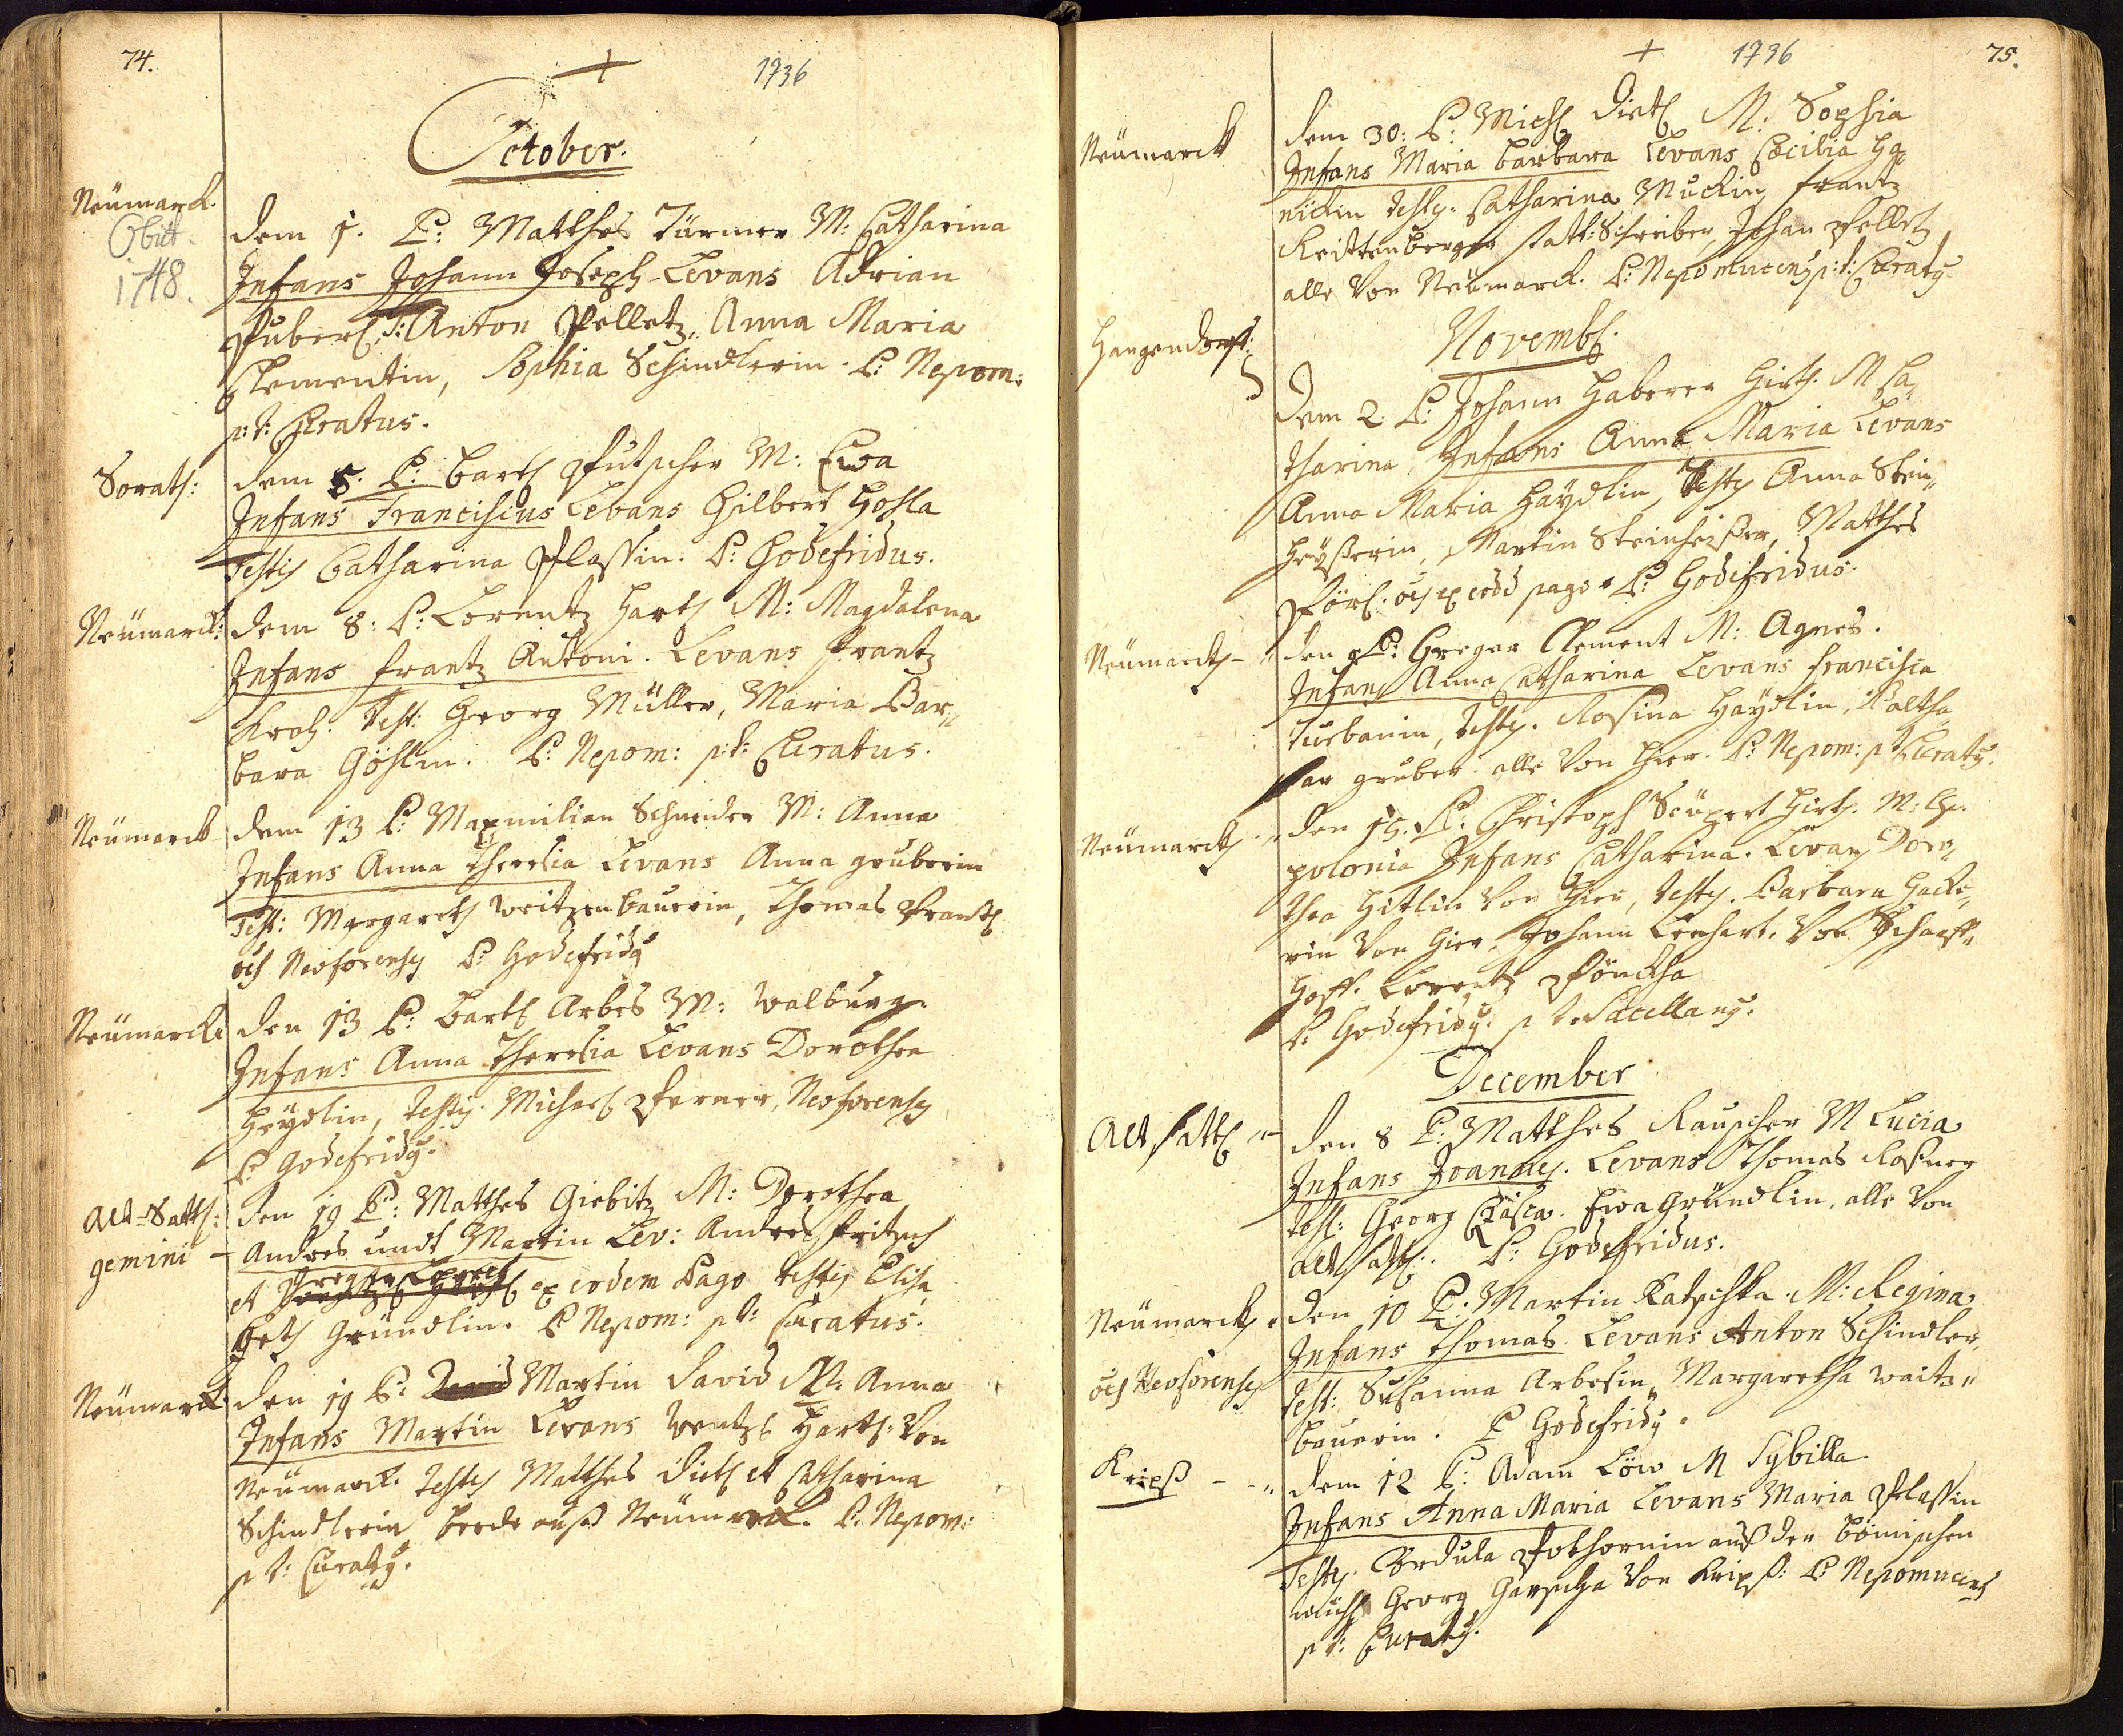 74.
+ 1736
October.
Neümarck.
Obiit
1748.
dem 1. P: Matthes Türmer M: Catharina
Infans Johann Joseph Levans Adrian
T: Anton Pelletz, Anna Maria
Clementin, Sophia Schindlerin. P: Nepom:
p: t: Curatus.
Sorath:
dem 5. P: Bartl Putscher M: Eva
Infans Franciscus Levans Gilbert Hohla
Testis Catharina Plassin. P: Godefridus.
Neümarck:
dem 8: P: Lorentz Hartl M: Magdalena
Infans frantz Antoni. Levans Frantz
Kroh. Test: Georg Müller, Maria Bar„
bara Göhlin. P: Nepom: p: t: Curatus.
Neümarck
dem 13 P: Maxmilian Schneider M: Anna
Infans Anna Theresia Levans Anna gruberin
Test: Margareth weitzenbauerin, Thomas
oēs Neoforenses P: Godefridus
Neümarck
den 13 P: Bartl Arbes M: Walburg
Infans Anna Theresia Levans Dorothea
Heÿdlin, Testis. Michael Pferner, Neoforenses
P: Godefridus.
Alt-Sattl:
gemini –
den 19 P: Matthes Giebitz M: Dorothea
Andres undt Martin Lev: Andres fritsch
et ex eodem Pago Testis Elisa
beth Gründlin. P Nepom: p t: Curatus.
Neümarck.
den 19 P: David Martin David M: Anna
Infans Martin Levans Wentzl Hartl. Von
Neümarck. Testes Matthes Dietl et Catharina
Schindlerin beede auß Neümarck. P. Nepom:
p t: Curatus.
+ 1736 75.
Neümarck
dem 30: P: Michl Dietl M: Sophia
Infans Maria barbara Levans Cæcilia Ha„
nickin Testes. Catharina Muckin, frantz
Reittenberger statt: Schreiber, Johan Pelletz
alle Von Neümarck. P: Nepomucenus p: t: Curatus
Novembl.
Hangendorff:
dem 2. P: Johann Haberer Hirth. M Ca„
tharina, Infans Anna Maria Levans
Anna Maria Haÿdlin, Testes Anna Stein„
heÿßerin, Martin Steinheißer, Matthes
oēs ex eodd pago P: Godefridus.
Neümarck –
den 9 P: Greger Clement M: Agnes.
Infans Anna Catharina Levans Francisca
Turbanin, Testes. Rosina Haÿdlin, Baltha„
sar gruber. alle Von hier. P: Nepom: p t Curatus.
Neümarck
den 15. P: Christoph Seüpert Hirth. M: A„
polonia Infans Catharina. Levans Doro„
thea Hitlin Von hier, Testes. Barbara Hacke„
rin Von hier, Johann Lenhart. Von Schaff„
hoff. Lorentz
P: Godefridus. p t. Sacellanus.
December
Alt sattl –
den 8 P: Matthes Rauscher M Lucia
Infans Joannes. Levans Thomas Roßner
Test: Georg Eva Gründlin. alle Von
Alt sattl. P: Godefridus.
Neümarck
oēs Neoforenses
den 10 P: Martin Katschka M: Regina.
Infans Thomas Levans Anton Schindler,
Test: Susanna Arbesin, Margaretha Weitz„
bauerin. P Godefridus.
Kripß – –
dem 12 P: Adam Löw M Sybilla
Infans Anna Maria Levans Maria Plassin
Testes. Cordula Pokhornin auß der bömischen
mühl Georg Garscha Von Kripß: P Nepomucens
p t: Curatus.